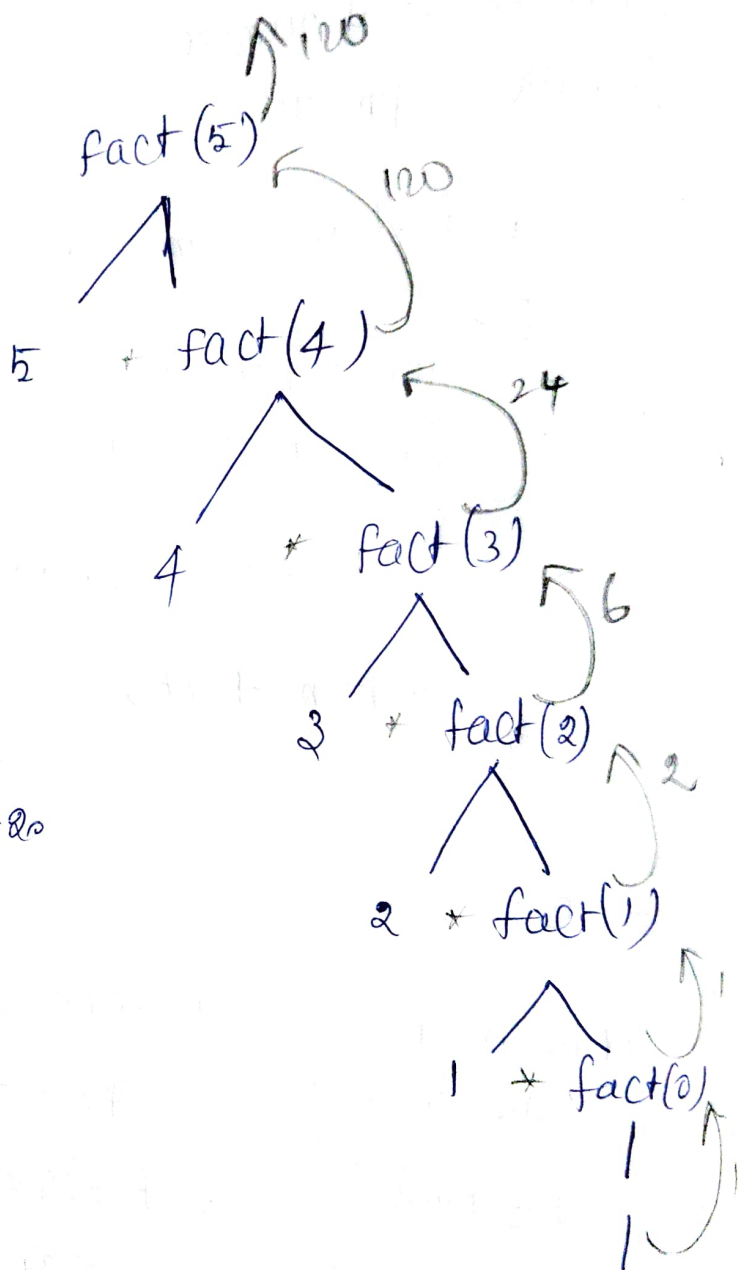 120
fact(5)
120
5 * fact(4)
24
4 * fact(3)
6
3 * fact(2)
2
2 * fact(1)
1
1 * fact(0)
1
1